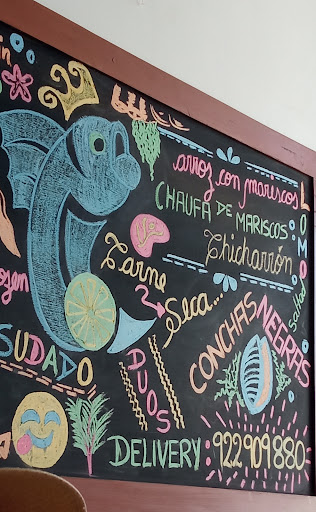 arroz con mariscos
CHAUFA DE MARISCOS
Chicharrón
LOMO
Saltado
Carne
Seca...
CONCHAS
NEGRAS
SUDADO
DUOS
DELIVERY: 922 909 880